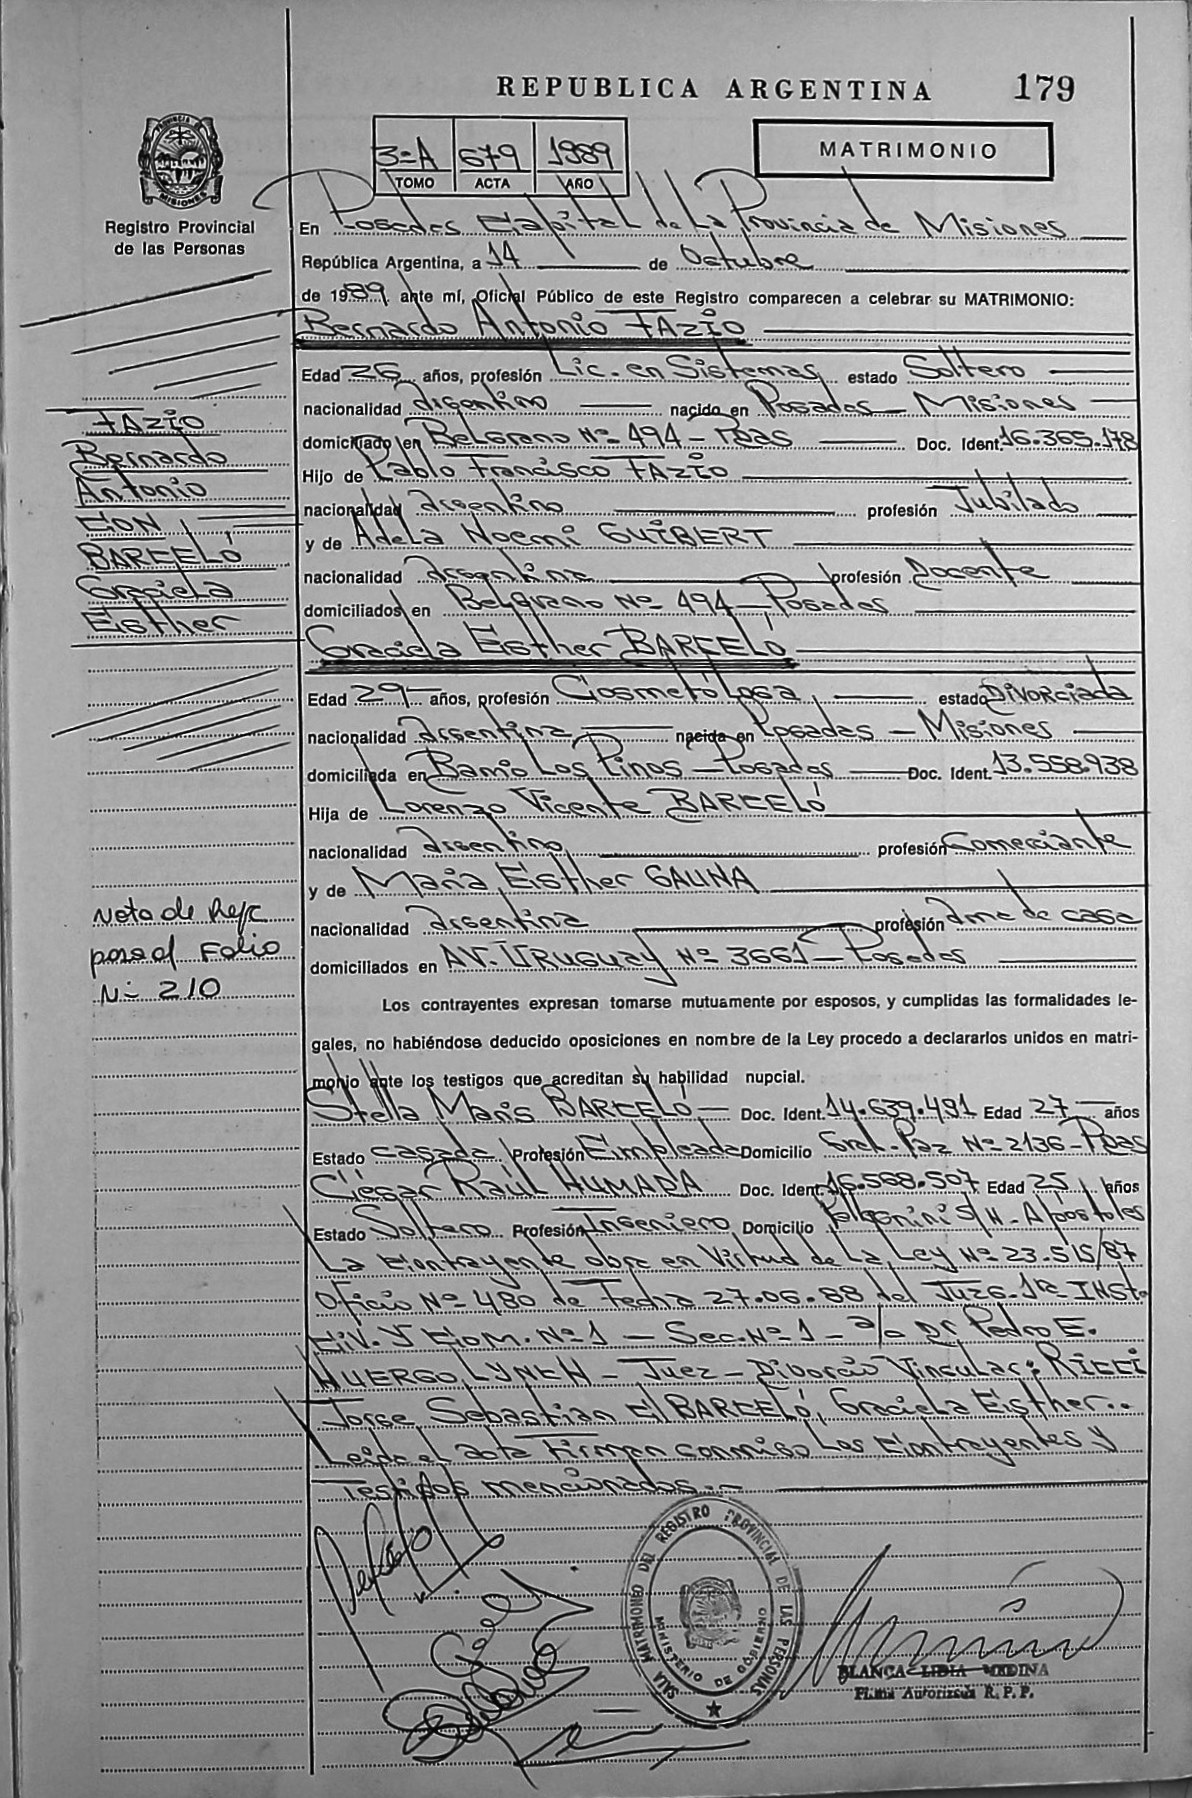 REPUBLICA ARGENTINA 179
PROVINCIA DE MISIONES
Registro Provincial de las Personas
3=A 679 1989
TOMO ACTA AÑO
MATRIMONIO
En Posadas Capital de La Provincia de Misiones
República Argentina, a 14 de Octubre
de 1989 ante mí, Oficial Público de este Registro comparecen a celebrar su MATRIMONIO:
Bernardo Antonio FAZIO
Edad 26 años, profesión Lic. en Sistemas estado Soltero
nacionalidad argentino nacido en Posadas - Misiones
domiciliado en Belgrano Nº 494 - Pdas Doc. Ident. 16.365.178
Hijo de Pablo Francisco FAZIO
nacionalidad argentino profesión Jubilado
y de Adela Noemi GUIBERT
nacionalidad argentina profesión Docente
domiciliados en Belgrano Nº 494 - Posadas
Graciela Esther BARCELÓ
Edad 29 años, profesión Cosmetóloga estado Divorciada
nacionalidad argentina nacida en Posadas - Misiones
domiciliada en Barrio Los Pinos - Posadas Doc. Ident. 13.558.938
Hija de Lorenzo Vicente BARCELÓ
nacionalidad argentino profesión Comerciante
y de Maria Esther GAUNA
nacionalidad argentina profesión Ama de casa
domiciliados en AV. URuguay Nº 3661 - Posadas
Los contrayentes expresan tomarse mutuamente por esposos, y cumplidas las formalidades le-
gales, no habiéndose deducido oposiciones en nombre de la Ley procedo a declararlos unidos en matri-
monio ante los testigos que acreditan su habilidad nupcial.
Stella Maris BARCELÓ - Doc. Ident. 14.639.491 Edad 27 años
Estado casada Profesión Empleada Domicilio Gral. Paz Nº 2136 - Pdas
César Raúl HUMADA Doc. Ident. 16.568.507 Edad 25 años
Estado Soltero Profesión Ingeniero Domicilio Pellegrini S/N - Apóstoles
La Contrayente obra en Virtud de La Ley Nº 23.515/87
Oficio Nº 480 de Fecha 27.06.88 del Juzg. 1ra INST.
Civ. Y Com. Nº 1 - Sec. Nº 1 - a/c Dr Pedro E.
HUERGO LYNCH - Juez - Divorcio Vincular: RICCI
Jorge Sebastian C/ BARCELÓ, Graciela Esther..
Leida el acta Firman conmigo Los Contrayentes y
Testigos mencionados.-
FAZIO
Bernardo
Antonio
CON
BARCELÓ
Graciela
Esther
Nota de Ref.
pasa al Folio
Nº 210
SALA MATRIMONIO DEL REGISTRO PROVINCIAL DE LAS PERSONAS
MINISTERIO DE GOBIERNO
BLANCA LIDIA MEDINA
Firma Autorizada R. P. P.